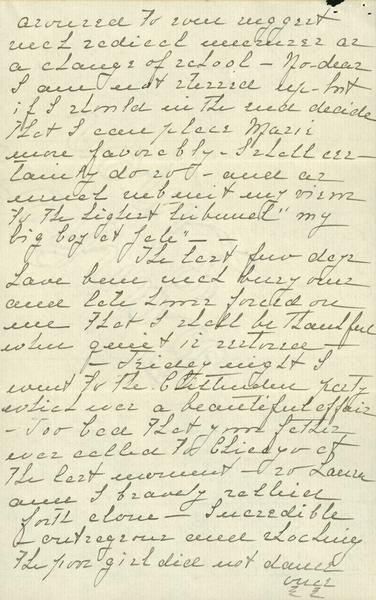 aroused to even suggest
such radical measures as
a change of school – No – dear
I am not stirred up – but
if I should in the end decide
that I can place Marie
more favorably – I shall cer-
tainly do so – and as
usual submit my views
to the highest tribunal "my
big boy at Yale" – –
The last few days
have been such busy ones
and late hours forced on
me that I shall be thankful
when quiet is restored –
– Friday night I
went to the Chittenden party
which was a beautiful affair
– Too bad that your father
was called to Chicago at
the last moment – so Laura
and I bravely sallied
forth alone – Incredible
outrageous and shocking
the poor girl did not dance
over